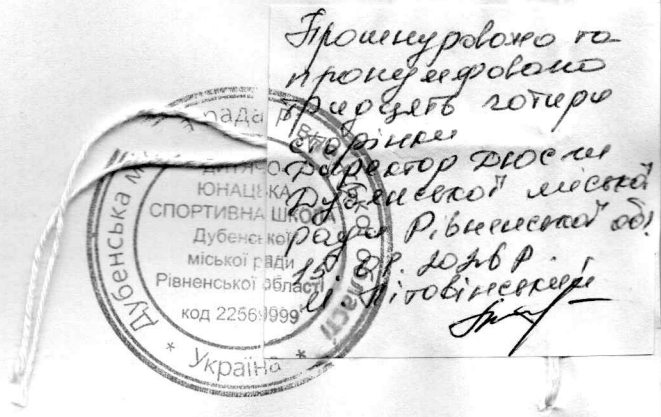 Прошнуровано та
пронумеровано
тридцять чотири
сторінки
Директор ДЮСШ
Дубенської міської
ради Рівненської обл.
2026 р.
Дубенська
рада
області
ЮНАЦЬКА
СПОРТИВНА ШКОЛА
Дубенської
міської ради
Рівненської області
код 22569999
* Україна *